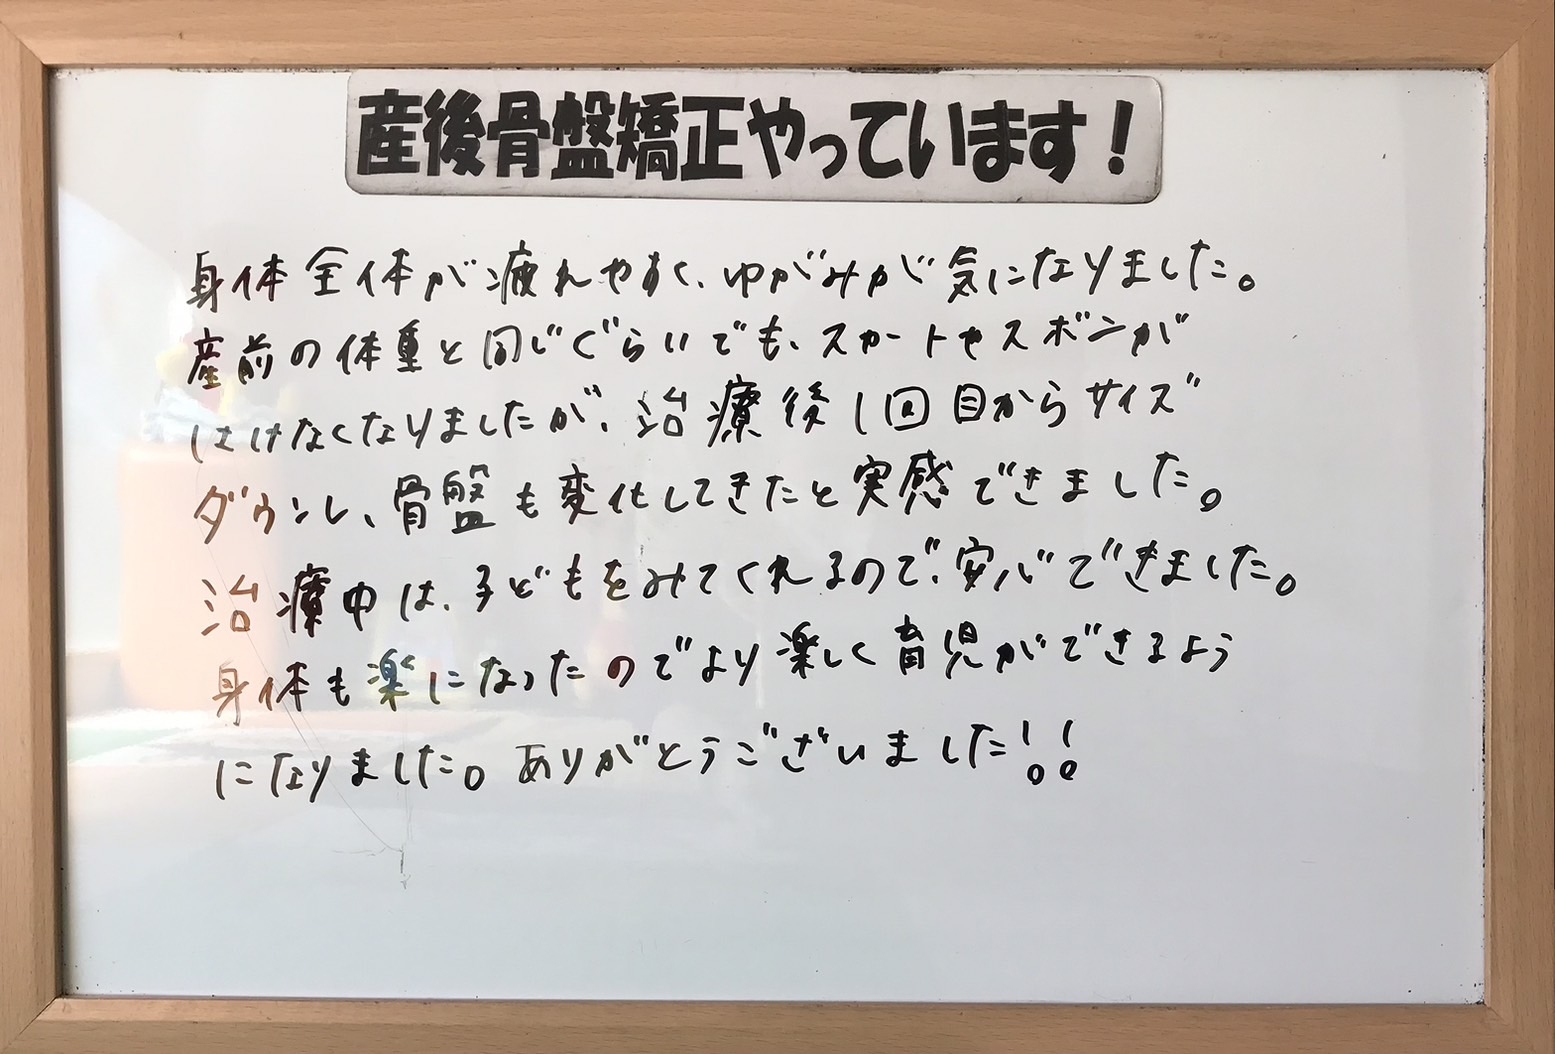 産後骨盤矯正やっています！
身体全体が疲れやすく、ゆがみが気になりました。
産前の体重と同じぐらいでも、スカートやズボンが
はけなくなりましたが、治療後1回目からサイズ
ダウンし、骨盤も変化してきたと実感できました。
治療中は、子どもをみてくれるので、安心できました。
身体も楽になったのでより楽しく育児ができるよう
になりました。ありがとうございました!!